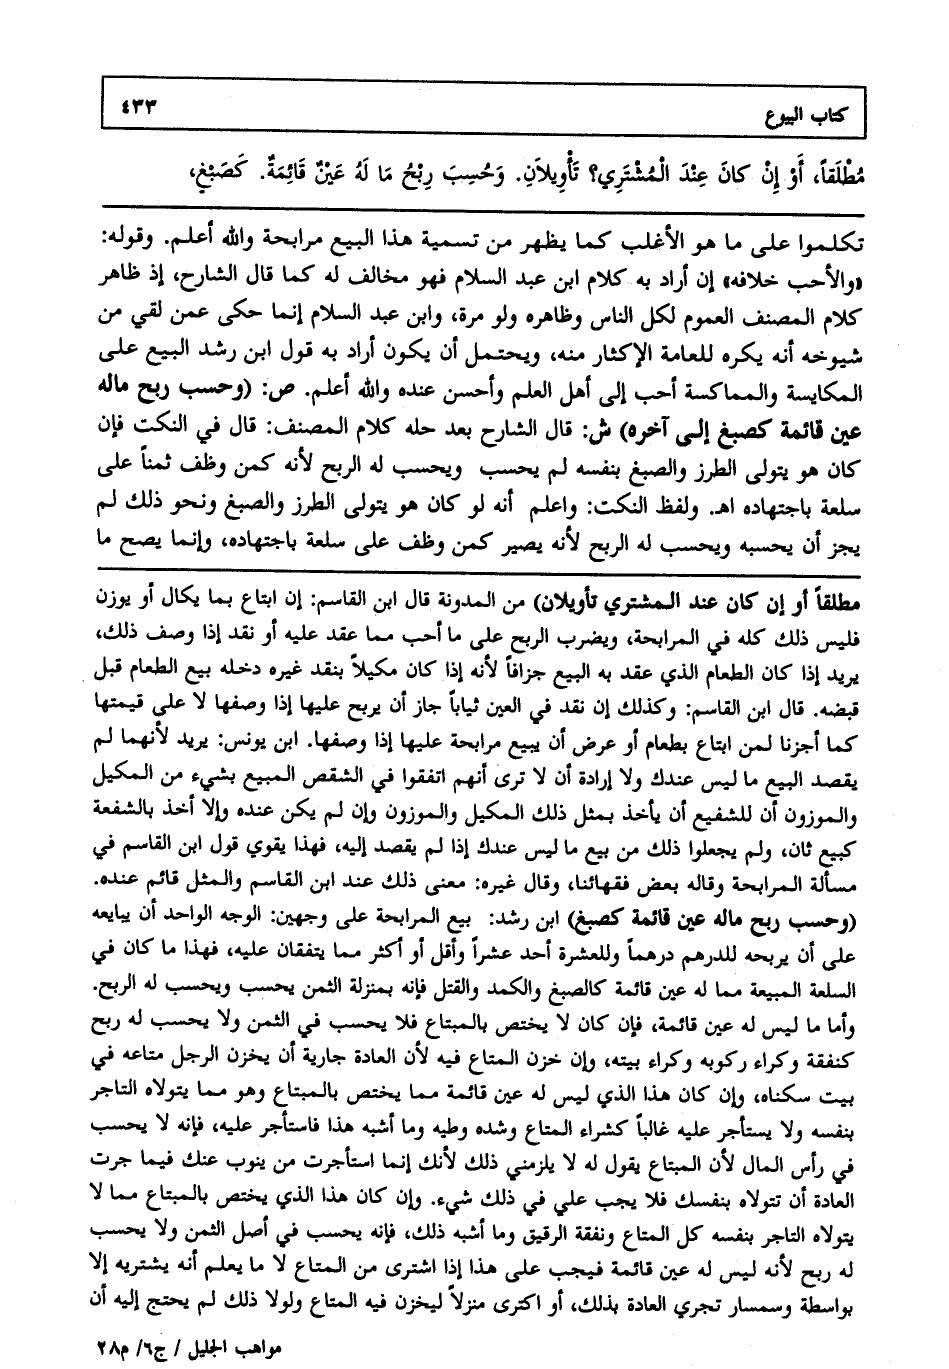 كتاب البيوع ٤٣٣
مُطْلَقاً، أَوْ إِنْ كانَ عِنْدَ الْمُشْتَرِي؟ تَأْوِيلاَنِ. وَحُسِبَ رِبْحُ مَا لَهُ عَيْنٌ قَائِمَةٌ. كَصَبْغٍ،
تكلموا على ما هو الأغلب كما يظهر من تسمية هذا البيع مرابحة والله أعلم. وقوله:
«والأحب خلافه» إن أراد به كلام ابن عبد السلام فهو مخالف له كما قال الشارح، إذ ظاهر
كلام المصنف العموم لكل الناس وظاهره ولو مرة، وابن عبد السلام إنما حكى عمن لقي من
شيوخه أنه يكره للعامة الإكثار منه، ويحتمل أن يكون أراد به قول ابن رشد البيع على
المكايسة والمماكسة أحب إلى أهل العلم وأحسن عنده والله أعلم. ص: (وحسب ربح ماله
عين قائمة كصبغ إلى آخره) ش: قال الشارح بعد حله كلام المصنف: قال في النكت فإن
كان هو يتولى الطرز والصبغ بنفسه لم يحسب ويحسب له الربح لأنه كمن وظف ثمناً على
سلعة باجتهاده اهـ. ولفظ النكت: واعلم أنه لو كان هو يتولى الطرز والصبغ ونحو ذلك لم
يجز أن يحسبه ويحسب له الربح لأنه يصير كمن وظف على سلعة باجتهاده، وإنما يصح ما
مطلقاً أو إن كان عند المشتري تأويلان) من المدونة قال ابن القاسم: إن ابتاع بما يكال أو يوزن
فليس ذلك كله في المرابحة، ويضرب الربح على ما أحب مما عقد عليه أو نقد إذا وصف ذلك،
يريد إذا كان الطعام الذي عقد به البيع جزافاً لأنه إذا كان مكيلاً بنقد غيره دخله بيع الطعام قبل
قبضه. قال ابن القاسم: وكذلك إن نقد في العين ثياباً جاز أن يربح عليها إذا وصفها لا على قيمتها
كما أجزنا لمن ابتاع بطعام أو عرض أن يبيع مرابحة عليها إذا وصفها. ابن يونس: يريد لأنهما لم
يقصد البيع ما ليس عندك ولا إرادة أن لا ترى أنهم اتفقوا في الشقص المبيع بشيء من المكيل
والموزون أن للشفيع أن يأخذ بمثل ذلك المكيل والموزون وإن لم يكن عنده وإلا أخذ بالشفعة
كبيع ثان، ولم يجعلوا ذلك من بيع ما ليس عندك إذا لم يقصد إليه، فهذا يقوي قول ابن القاسم في
مسألة المرابحة وقاله بعض فقهائنا، وقال غيره: معنى ذلك عند ابن القاسم والمثل قائم عنده.
(وحسب ربح ماله عين قائمة كصبغ) ابن رشد: بيع المرابحة على وجهين: الوجه الواحد أن يبايعه
على أن يربحه للدرهم درهماً وللعشرة أحد عشراً وأقل أو أكثر مما يتفقان عليه، فهذا ما كان في
السلعة المبيعة مما له عين قائمة كالصبغ والكمد والفتل فإنه بمنزلة الثمن يحسب ويحسب له الربح.
وأما ما ليس له عين قائمة، فإن كان لا يختص بالمبتاع فلا يحسب في الثمن ولا يحسب له ربح
كنفقة وكراء ركوبه وكراء بيته، وإن خزن المتاع فيه لأن العادة جارية أن يخزن الرجل متاعه في
بيت سكناه، وإن كان هذا الذي ليس له عين قائمة مما يختص بالمبتاع وهو مما يتولاه التاجر
بنفسه ولا يستأجر عليه غالباً كشراء المتاع وشده وطيه وما أشبه هذا فاستأجر عليه، فإنه لا يحسب
في رأس المال لأن المبتاع يقول له لا يلزمني ذلك لأنك إنما استأجرت من ينوب عنك فيما جرت
العادة أن تتولاه بنفسك فلا يجب علي في ذلك شيء. وإن كان هذا الذي يختص بالمبتاع مما لا
يتولاه التاجر بنفسه كل المتاع ونفقة الرقيق وما أشبه ذلك، فإنه يحسب في أصل الثمن ولا يحسب
له ربح لأنه ليس له عين قائمة فيجب على هذا إذا اشترى من المتاع لا ما يعلم أنه يشتريه إلا
بواسطة وسمسار تجري العادة بذلك، أو اكترى منزلاً ليخزن فيه المتاع ولولا ذلك لم يحتج إليه أن
مواهب الجليل / ج٦/ م٢٨